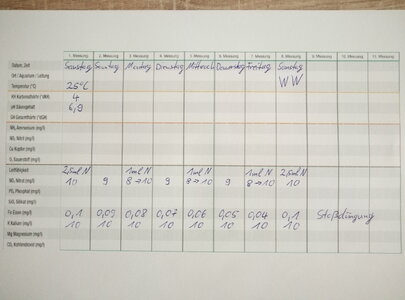 1. Messung 2. Messung 3. Messung 4. Messung 5. Messung 6. Messung 7. Messung 8. Messung 9. Messung 10. Messung 11. Messung
Datum, Zeit Samstag Sonntag Montag Dienstag Mittwoch Donnerstag Freitag Samstag
Ort / Aquarium / Leitung WW
Temperatur (°C) 25°C
KH Karbonathärte (°dKH) 4
pH Säuregehalt 6,9
GH Gesamthärte (°dGH)
NH₄ Ammonium (mg/l)
NO₂ Nitrit (mg/l)
Cu Kupfer (mg/l)
O₂ Sauerstoff (mg/l)
Leitfähigkeit 2,5ml N 1ml N 1ml N 1ml N 2,5ml N
NO₃ Nitrat (mg/l) 10 9 8→10 9 8→10 9 8→10 10
PO₄ Phosphat (mg/l)
SiO₂ Silikat (mg/l)
Fe Eisen (mg/l) 0,1 0,09 0,08 0,07 0,06 0,05 0,04 0,1 Stoßdüngung
K Kalium (mg/l) 10 10 10 10 10 10 10 10
Mg Magnesium (mg/l)
CO₂ Kohlendioxid (mg/l)